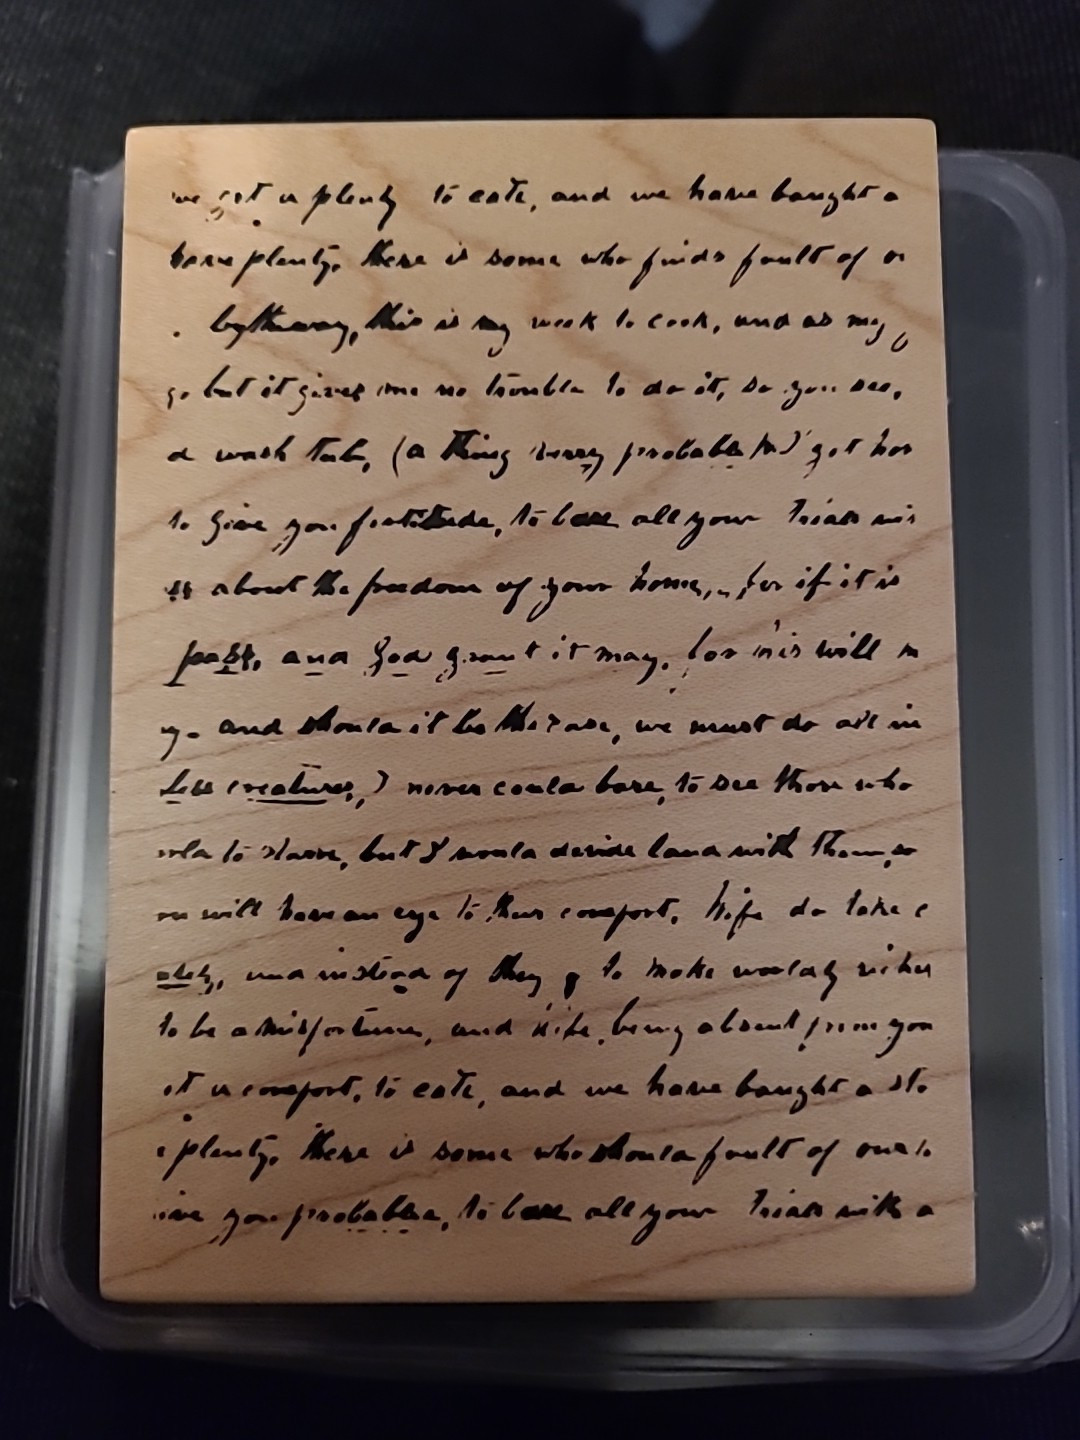 we got a plenty to eate, and we have bought a
have plenty, there is some who finds fault of
by the way, this is my week to cook, and as my
go but it gives me no trouble to do it, so you see,
d wash tub, (a thing verry probable got
to give you fortitude, to bare all your trials
about the freedom of your home, for if it is
past, and God grant it may, for his will
and should it be the case, we must do all in
less creatures,) never could bare, to see those who
to starve, but I would devide land with them, so
will have an eye to thur comfort, Wife do take
and instead of they to make worldly riches
to be a misfortune, and Wife, being absent from you
a comfort, to eate, and we have bought a sto
plenty, there is some who should fault of our
give you probable, to bare all your trials with a